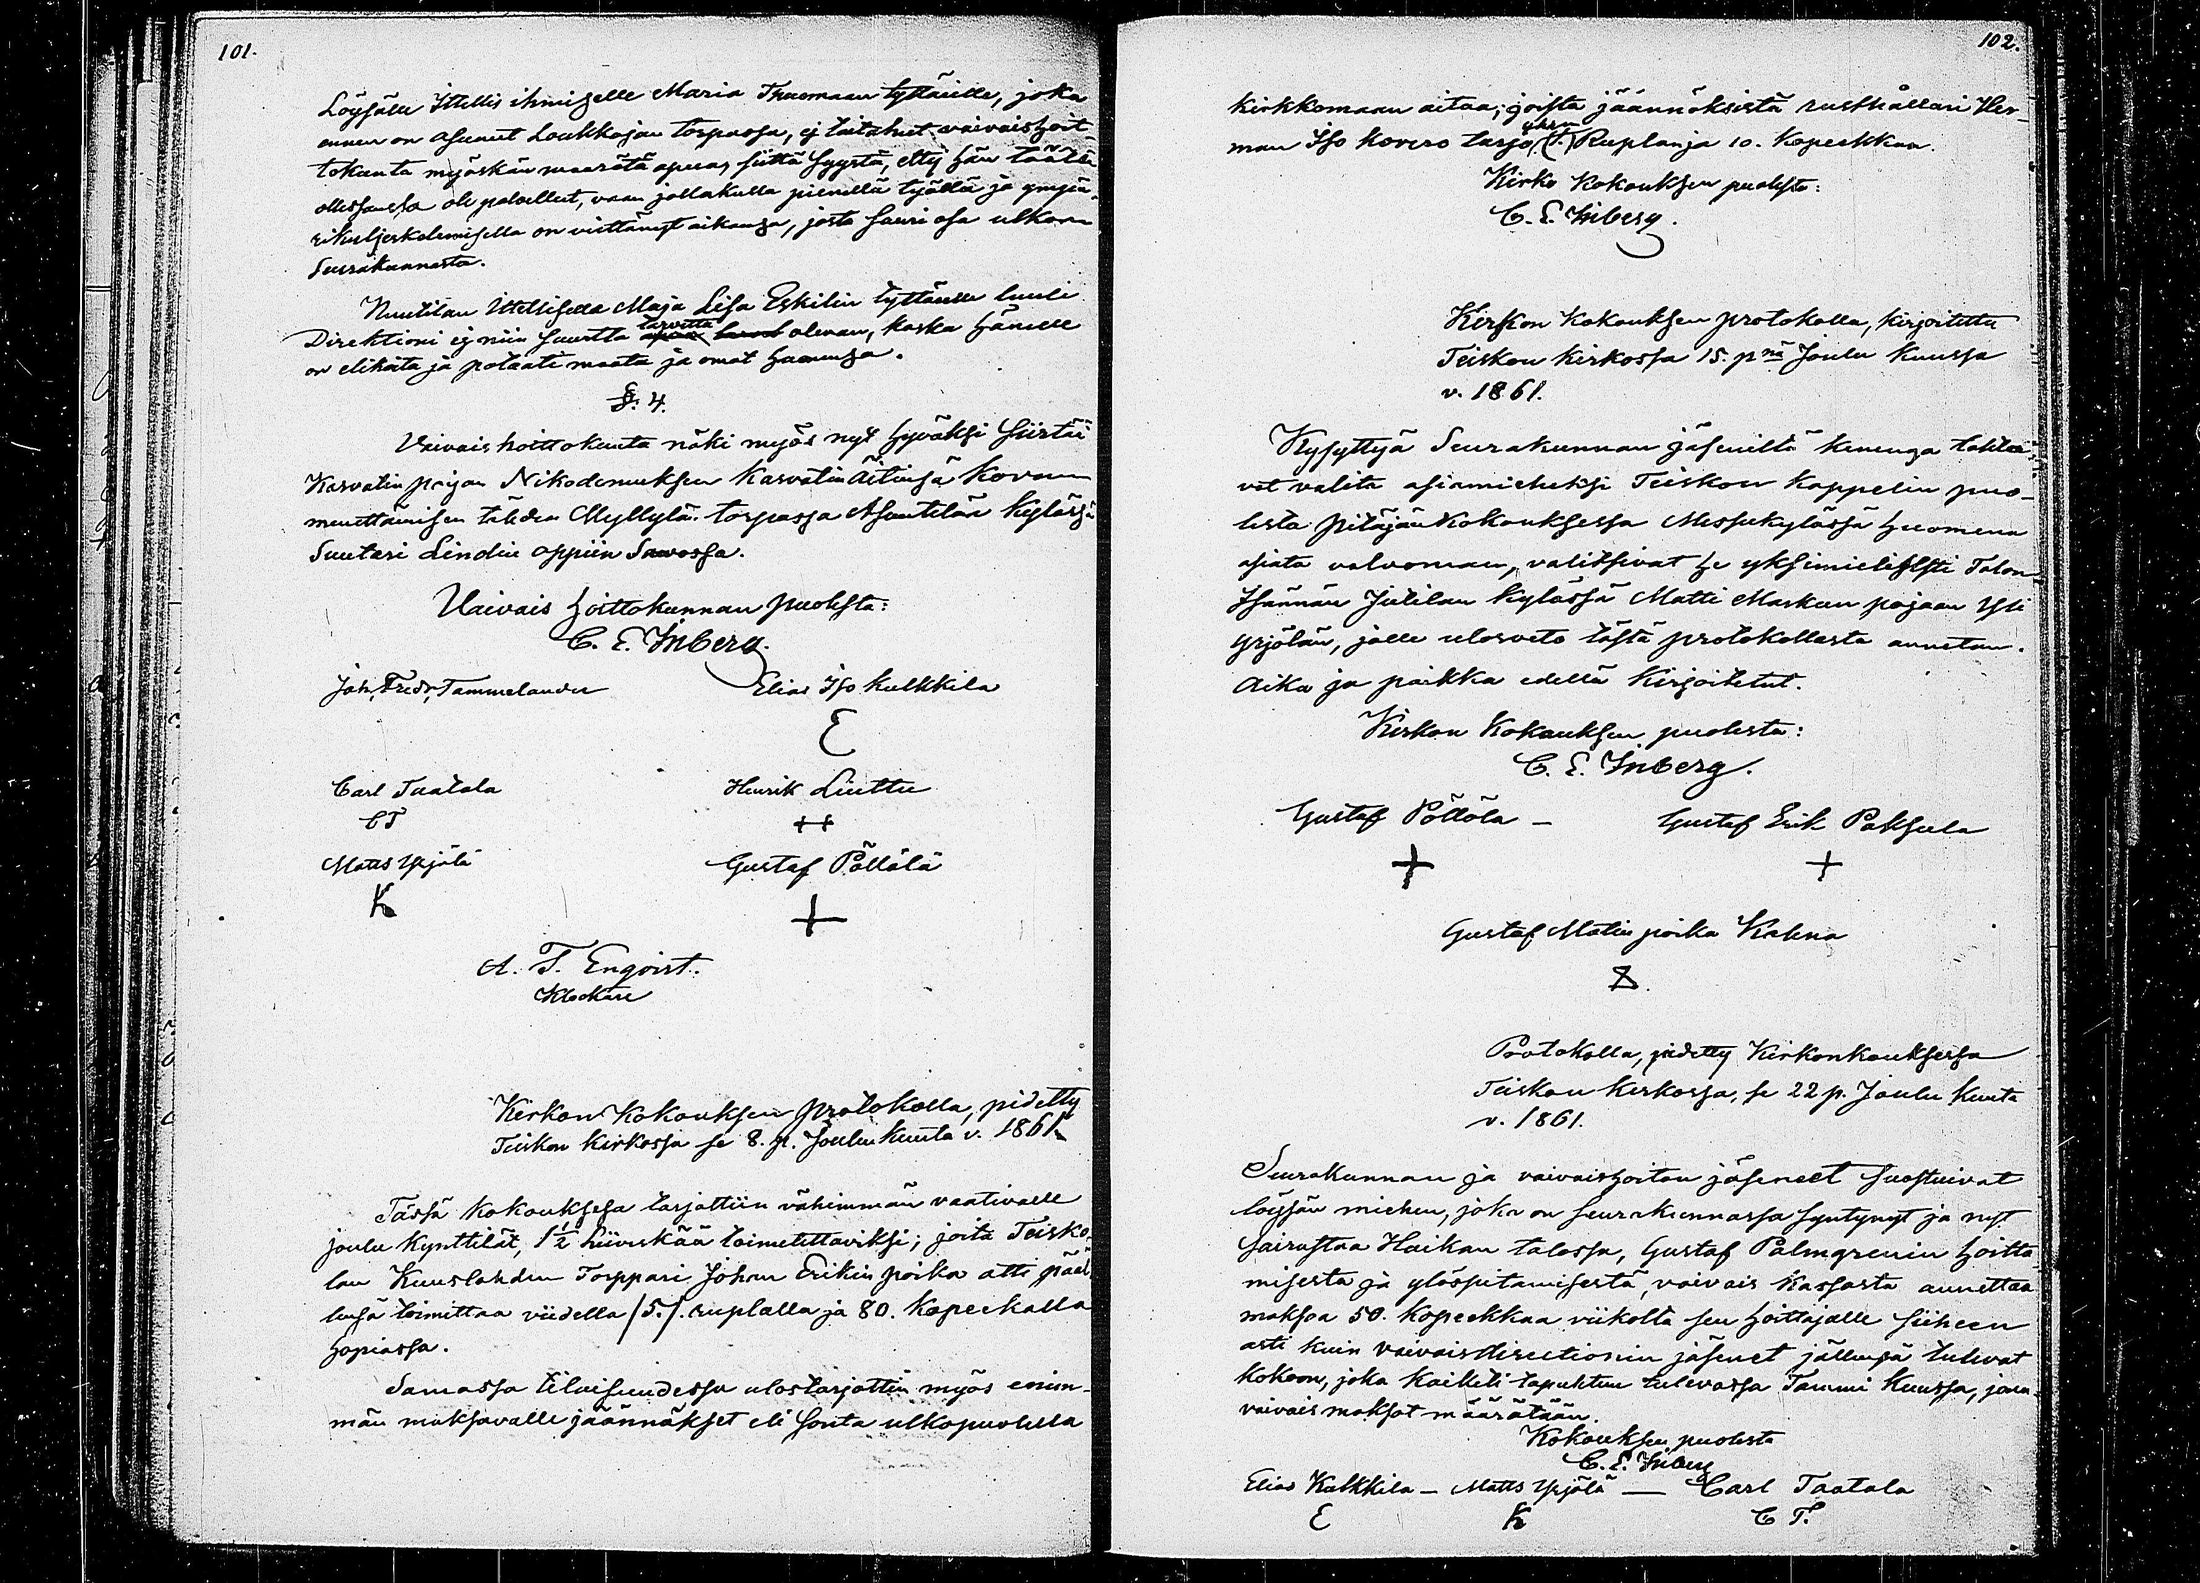 101.
Löysälle Ittellis ihmiselle Maria Thuomaan tyttärelle, joka
ennen on asunut Loukkojan torpassa, ej taitanut vaivaishoit
tokunta myöskän maarätä apua, siittä syystä, etty hän täälä
ollessansa ole palvellut, vaan jollakulla pienellä työllä ja ympä-
rikuljeskelemisella on viettänyt aikansa, josta suuri osa ulkona
Seurakunnasta.
Nuutilan Ittellisella Maja Lisa Eskilin tyttärelle luuli
Direktioni ej niin suurta tarvetta olevan, koska hänelle
on elikoita ja potaati maata ja omat huonensa.
§. 4.
Vaivais hoittokunta näki myös nyt hyväksi siirtää
Kasvatin pojan Nikodemuksen Kasvatin Äitinsä kovan
menettämisen tähden Myllylä torpassa Asuntilan kylässä
Suutari Lindin oppiin Savossa.
Vaivais hoittokunnan puolesta:
C. E. Inberg.
Joh. Fredr. Tammelander
Elias Iso Kulkkila
E
Carl Taatala
CT
Henrik Liuttu
++
Matts Yrjölä
K
Gustaf Pöllölä
+
A. F. Engvist.
Klockare
Kirkon Kokouksen Protokolla, pidetty
Teiskon Kirkossa se 8. p. Joulu Kuuta v. 1861.
Tässä Kokouksessa tarjottiin vähimmän vaativalle
joulu Kynttilät, 1 1/2 Liiviskää toimitettaviksi; joita Teisko-
lan Kuuslahden Torppari Johan Erikin poika otti pääl
lensä toimittaa viidella /5./ ruplalla ja 80. Kopeekalla
hopiassa.
Samassa tilaisuudessa ulostarjottiin myös enim-
män maksavalle jäännökset eli sonta ulkopuolella
102.
kirkkomaan aitaa; joista jäännöksistä rusthållari Her-
man Iso Kovero tarjo yhen (1.) Ruplan ja 10. Kopeekkaa.
Kirko Kokouksen puolesta:
C. E. Inberg.
Kirkon Kokouksen protokolla, kirjoitettu
Teiskon Kirkossa 15. pnä Joulu Kuussa
v. 1861.
Kysyttyä Seurakunnan jäseniltä kenenga tahtoi-
vat valita asiamieheksi Teiskon Kappelin puo-
lesta Pitäjän Kokouksessa Messukylässä huomena
asiata valvoman, valitsivat he yksimielisesti Talon
Isännän Jutilan kylässä Matti Markun pojaan Yli
Yrjölän, jolle ulosveto tästä protokollasta annetan.
Aika ja paikka edellä kirjoitetut.
Kirkon Kokouksen puolesta:
C. E. Inberg.
Gustaf Pöllölä —
+
Gustaf Erik Paksula
+
Gustaf Matin poika Kahna
Protokolla, pidetty Kirkonkouksessa
Teiskon Kirkossa, se 22 p. Joulu Kuuta
v. 1861.
Seurakunnan ja vaivaishoiton jäsenet suostuivat
löysän miehen, joka on seurakunnassa syntynyt ja nyt
sairastaa Haikan talossa, Gustaf Palmgrenin hoitta
misesta ja ylöspitamisestä, vaivais kassasta annettaa
maksoa 50. Kopeekkaa viikolta sen hoittajalle siiheen
asti kuin vaivaisdirectionin jäsenet jällensä tulevat
kokoon, joka kaiketi tapahtuu tulevassa Tammi Kuussa, jona
vaivais maksot määrätään.
Kokouksen puolesta
C. E. Inberg
Elias Kulkkila — Matts Yrjölä — Carl Taatala
E K C T.